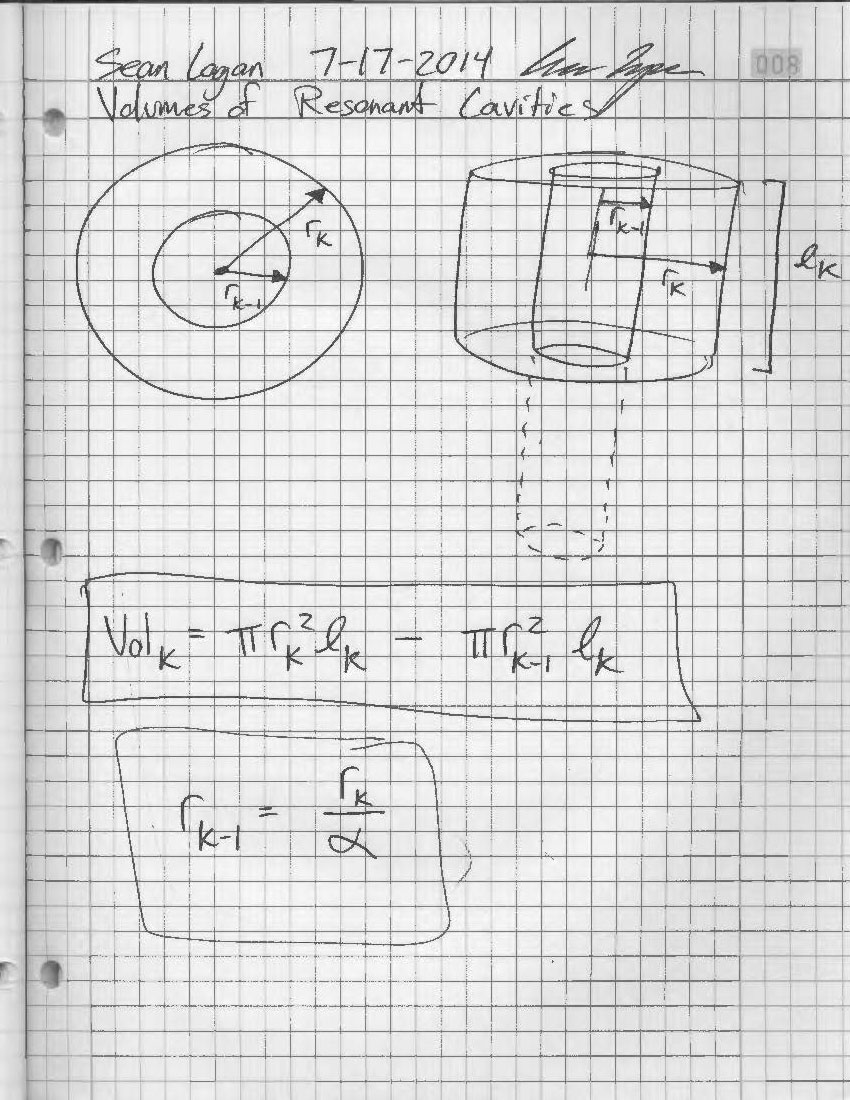 Sean Logan 7-17-2014
008
Volumes of Resonant Cavities
r_k
r_{k-1}
r_{k-1}
r_k
ℓ_k
Vol_k = π r_k² ℓ_k − π r_{k-1}² ℓ_k
r_{k-1} = r_k / α